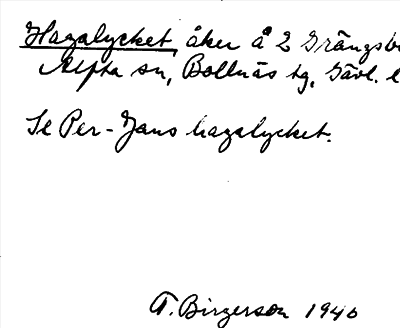 Hagalycket, åker å 2 Grängsbo
Alfta sn, Bollnäs tg, Gävl. l
Se Per-Jans hagalycket.
T. Birgerson 1940